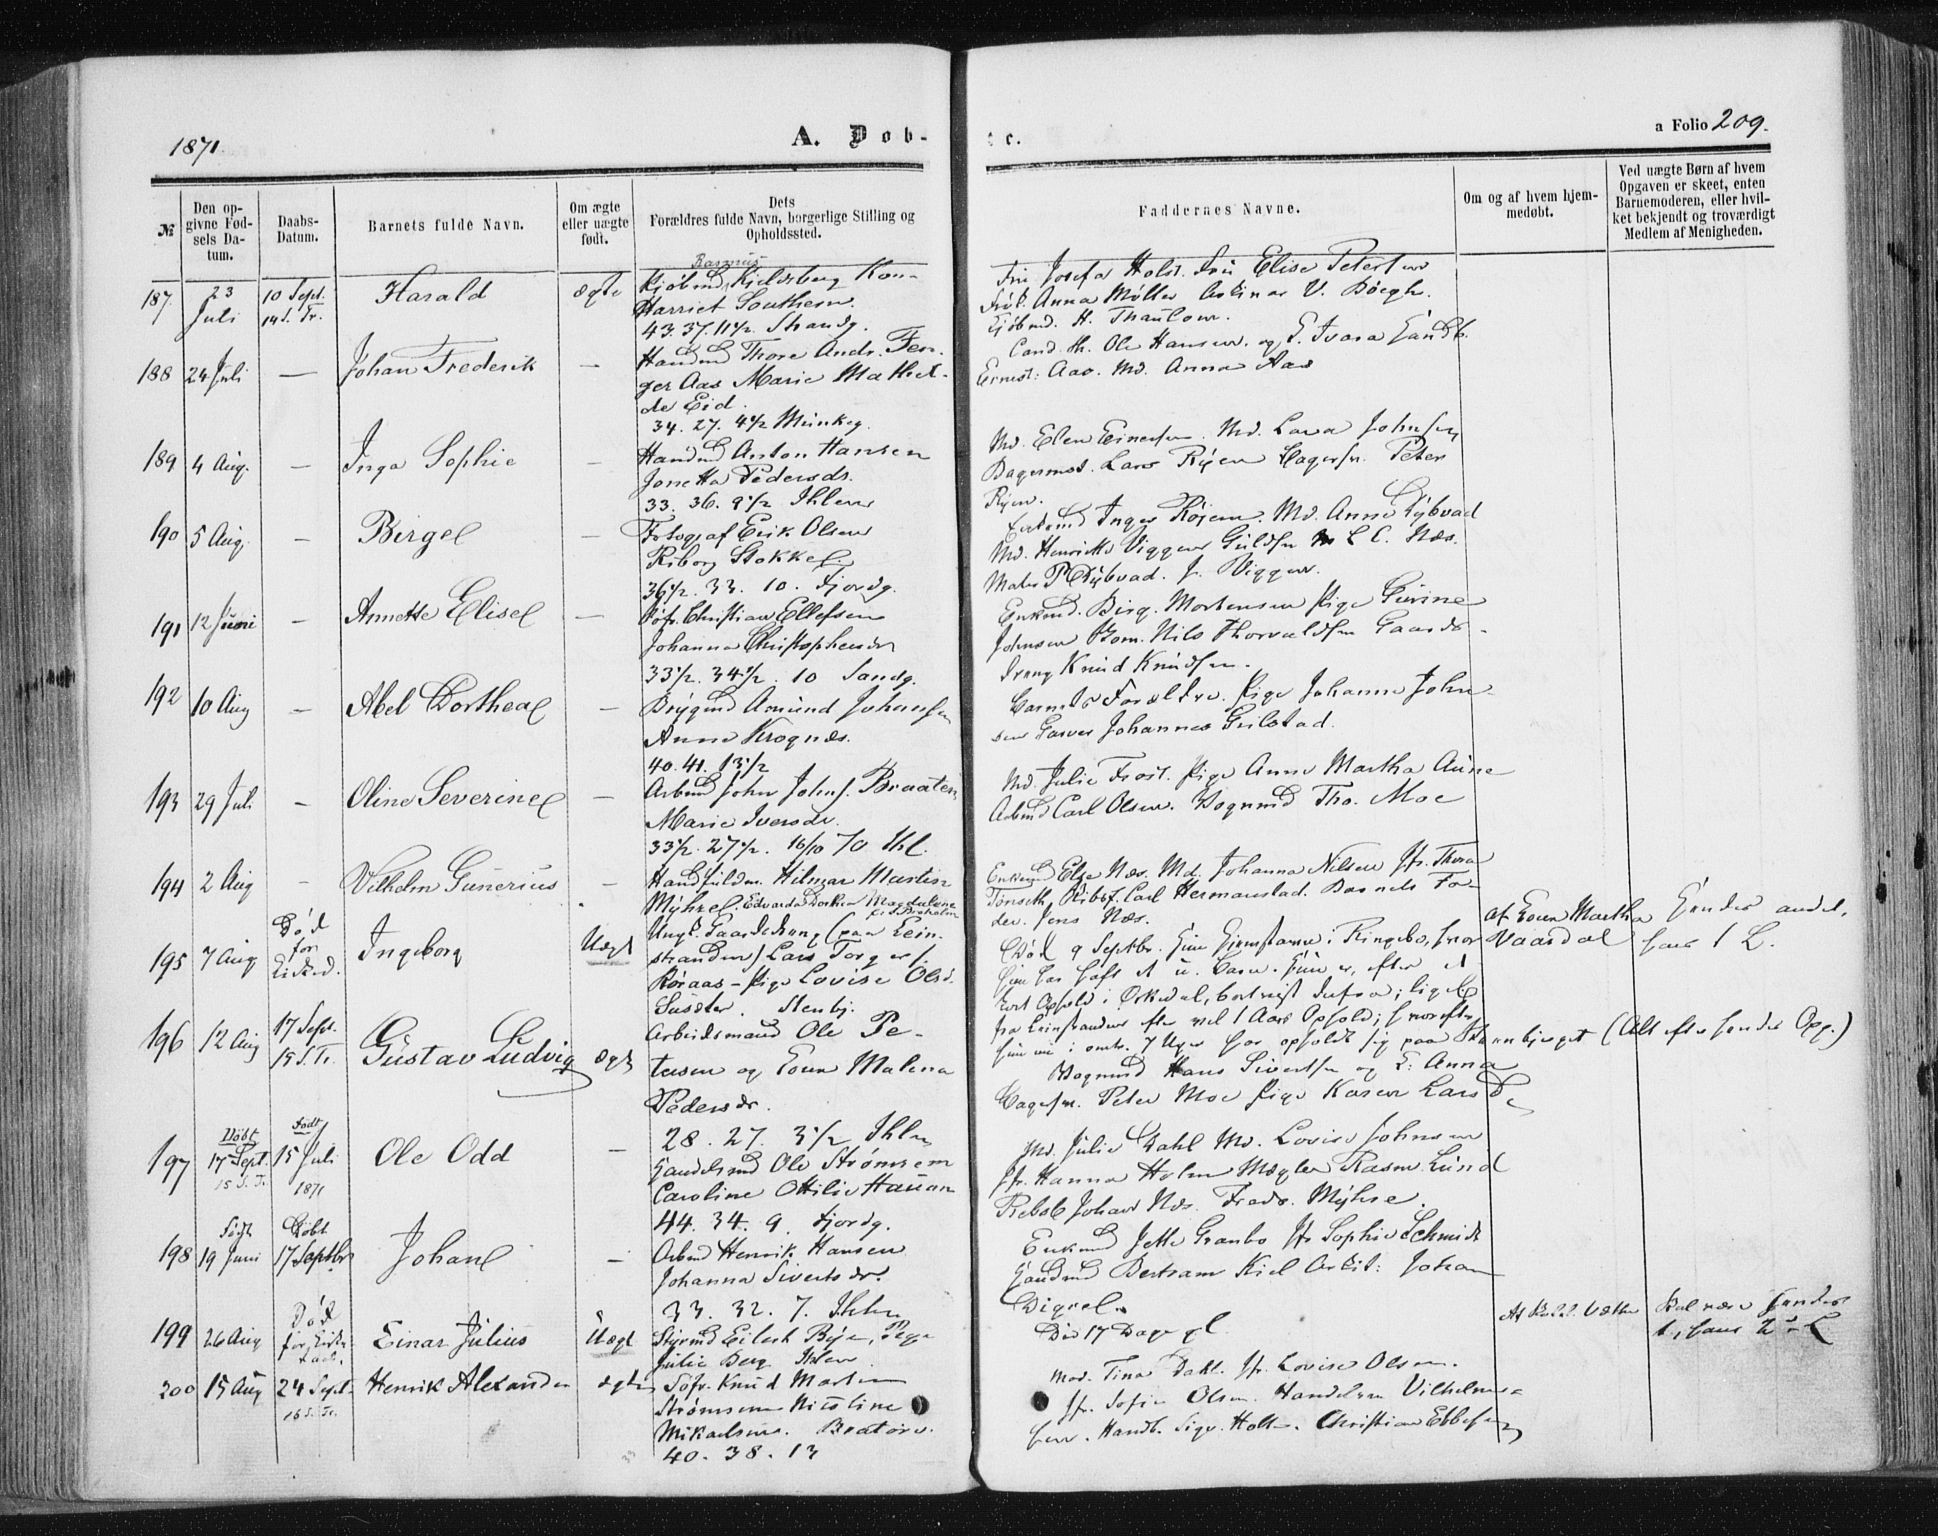 1871
A. Døb-
c.
a Folio 209.
№
Den op-
givne Fød-
sels Da-
tum.
Daabs-
Datum.
Barnets fulde Navn.
Om ægte
eller uægte
født.
Dets
Forældres fulde Navn, borgerlige Stilling og
Opholdssted.
Faddernes Navne.
Om og af hvem hjem-
medøbt.
Ved uægte Børn af hvem
Opgaven er skeet, enten
Barnemoderen, eller hvil-
ket bekjendt og troværdigt
Medlem af Menigheden.
187 23 Juli
10 Sept.
14 S. Tr.
Harald
ægte
Rasmus
Kjøbmd Kjeldsberg Kone
Harriet Southern
43. 37. 11½ Strandg.
Fru Josefa Holst. Fru Elise Petersen
Frøk. Anna Møller V. Bøegh.
Kjøbmd. H. Thaulow.
188 24 Juli —
Johan Frederik
—
Handmd Thore Andr. Fen-
ger Aas Marie Mathil-
de Eid.
34. 27. 4½ Munkeg.
Cand. th. Ole Hansen. og
Ernst: Aas. Md. Anna Aas
189 4 Aug. —
Inga Sophie
—
Handmd Anton Hansen
Jonetta Pedersdr.
33. 36. 9½ Ihlen
Md. Elen Einersen. Md. Lava Johnsen
Bagermst. Lars Røjen Bagersv. Peter
Røjen.
190 5 Aug. —
Birgel
—
Fotograf Erik Olsen
Riborg Stokke
36½. 33. 10. Fjordg.
Enkemd Inger Røjem. Md. Anna Dybvad
Md. Henrikke Viggen Guldsm L C. Næs.
Maler P Dybvad. J. Viggen.
191 12 Juni —
Annette Elise
—
Søfr. Christian Ellefsen
Johanna Christophersdr
33½. 34½. 10 Sandg.
Enkemd. Birg. Mortensen Pige Gurine
Johnsen Nils Thorvaldsen Gaards-
dreng Knud Knudsen.
192 10 Aug —
Abel Dorthea
—
Brygmd Amund Johansen
Anne Krognæs.
40. 41. 13½
Barnets Forældre. Pige Johanna John
sen Garver Johannes Gilstad.
193 29 Juli —
Oline Severine
—
Arbmd John Johns. Braaten
Marie Iversdr.
33½. 27½. 16/10 70 Ihl.
Md. Julie Frost. Pige Anne Martha Aune
Arbmd Carl Olsen. Vognmd Tho. Moe
194 2 Aug —
Vilhelm Gunerius
—
Handfuldm. Hilmar Martin
Myhre. Edvarda Dorthea Magdalene
Enkemd Else Næs. Md. Johanna Nilsen Jfr. Thora
Tønseth Købsf. Carl Hermanstad. Barnets Fa-
der. Jens Næs.
195 7 Aug
Død
for
Kirked.
Ingeborg
Uægt
Ungk. Gaardsdreng (paa Lein-
stranden) Lars Torgers.
Røraas – Pige Lovise Olsd.
Stenbj.
Død 9 Septbr. Hun Hjemstavn i Ringebo, hvor
hun har haft et u. Barn. Hun er, efter et
kort Ophold i Ørkedal, bortreist derfra; ligel.
fra Leinstranden efter vel 1 Aars Ophold; hvorefter
hun nu i omtr. 7 Uger har opholdt sig paa Steenbjerget (Alt efter hendes Opg.)
af Konen Martha
Vaardal
Hendes andet,
hans 1 L.
196 12 Aug
17 Sept.
15 S. Tr.
Gustav Ludvig
ægt
Arbeidsmand Ole Pe-
tersen og Kone Malena
Pedersdr.
28. 27. 3½ Ihlen
Vognmd Hans Sivertsen og K: Anna
Bagersv. Peter Moe Pige Karen Larsd.
197
Døbt
17 Sept.
15 S. Tr.
Født
15 Juli
1871
Ole Odd
—
Handelsmd Ole Strømsem
Caroline Ottilie Hauan
44. 34. 9. Fjordg.
Md. Julie Dahl Md. Lovise Johnsen
Jfr. Hanna Holm Mægler Rasm. Lund
Rebsl Johan Næs. Fredr. Myhre.
198
Født
19 Juni
Døbt
17 Septbr
Johan
—
Arbmd Henrik Hansen
Johanna Sivertsdr.
33. 32. 7. Ihlen
Enkemd Jette Granbo Jfr Sophie Schmidt
Handmd Bertram Kiel Arkit: Johan
Digre.
199 26 Aug
Død
for Kirke
Einar Julius
Uægt
Styrmd Eilert Bye, Pige
Julie Berg Ihlen
Død 17 Dage gl.
200 15 Aug
24 Sept.
16 S. Tr.
Henrik Alexander
ægte
Søfr. Knud Martin
Strømsem Nicoline
Mikaelsen. Bratøren.
40. 38. 13
Mad. Tina Dahl. Jfr. Lovise Olsen.
Jfr. Sofie Olsen. Handelsm Vilhelm
Handb. Sigv. Holte. Christian Ebbesen